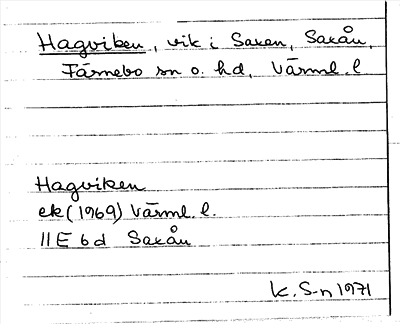 Hagviken, vik i Saxen, Saxån,
Färnebo sn o. hd, Värml. l
Hagviken
ek (1969) Värml. l.
11 E 6 d Saxån
K. S-n 1971